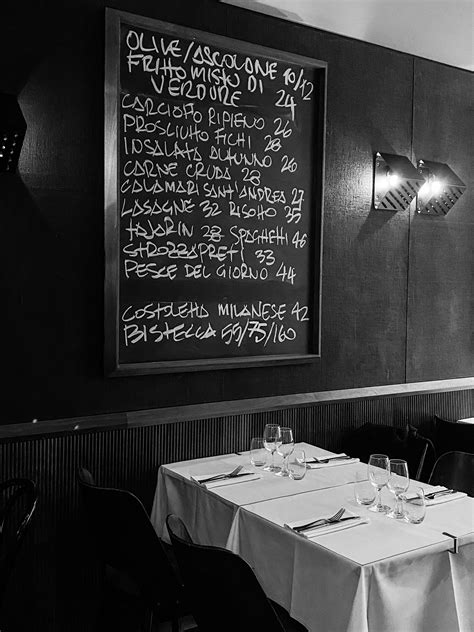 OLIVE/ASCOLANE 10/12
FRITTO MISTO DI
VERDURE 24
CARCIOFO RIPIENO 26
PROSCIUTTO FICHI 28
INSALATA AUTUNNO 26
CARNE CRUDA 28
CALAMARI SANT'ANDREA 27
LASAGNE 32 RISOTTO 35
TAJARIN 28 SPAGHETTI 46
STROZZAPRETI 33
PESCE DEL GIORNO 44
COSTOLETTA MILANESE 42
BISTECCA 55/75/160